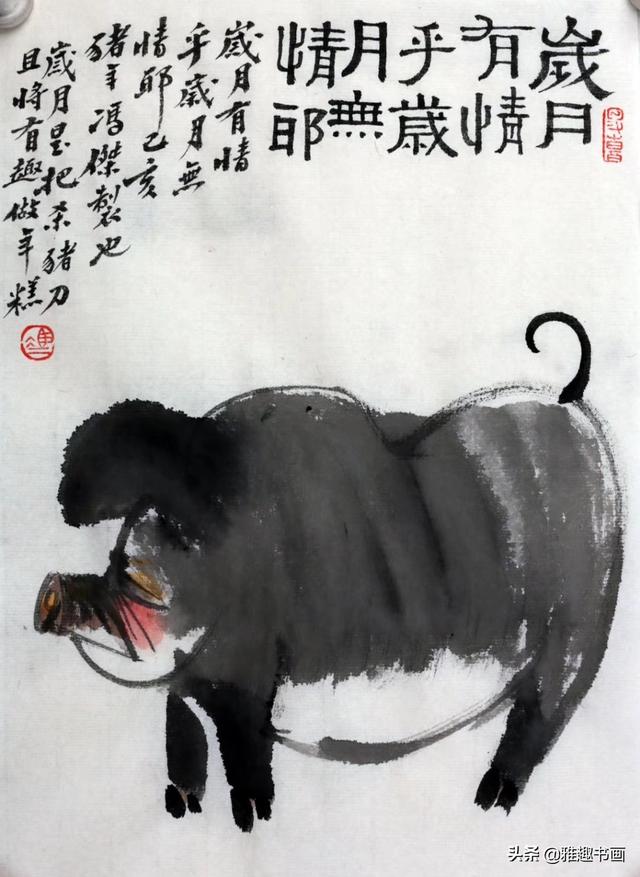 歲月
有情
乎歲
月無
情耶
歲月有情
乎歲月無
情耶己亥
豬年馮傑製也
歲月是把杀豬刀
且將有趣做年糕
头条 @雅趣书画